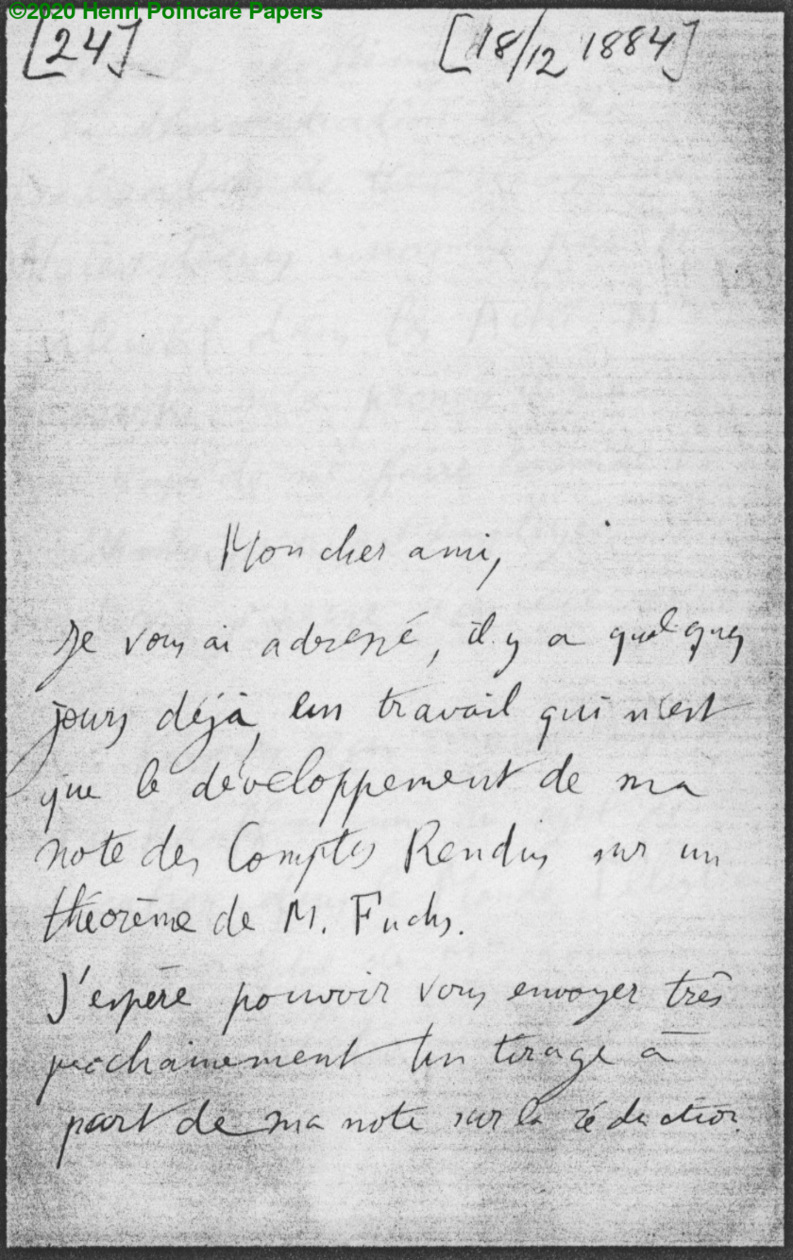 ©2020 Henri Poincaré Papers
[24] [18/12 1884]
Mon cher ami,
Je vous ai adressé, il y a quelques
jours déjà, un travail qui n'est
que le développement de ma
note des Comptes Rendus sur un
théorème de M. Fuchs.
J'espère pouvoir vous envoyer très
prochainement un tirage à
part de ma note sur la réduction